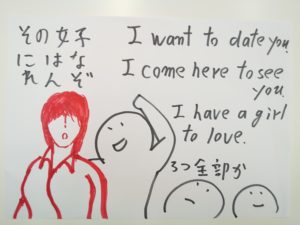 その女子
にはな
れんぞ
I want to date you.
I come here to see
you.
I have a girl
to love.
3つ全部が